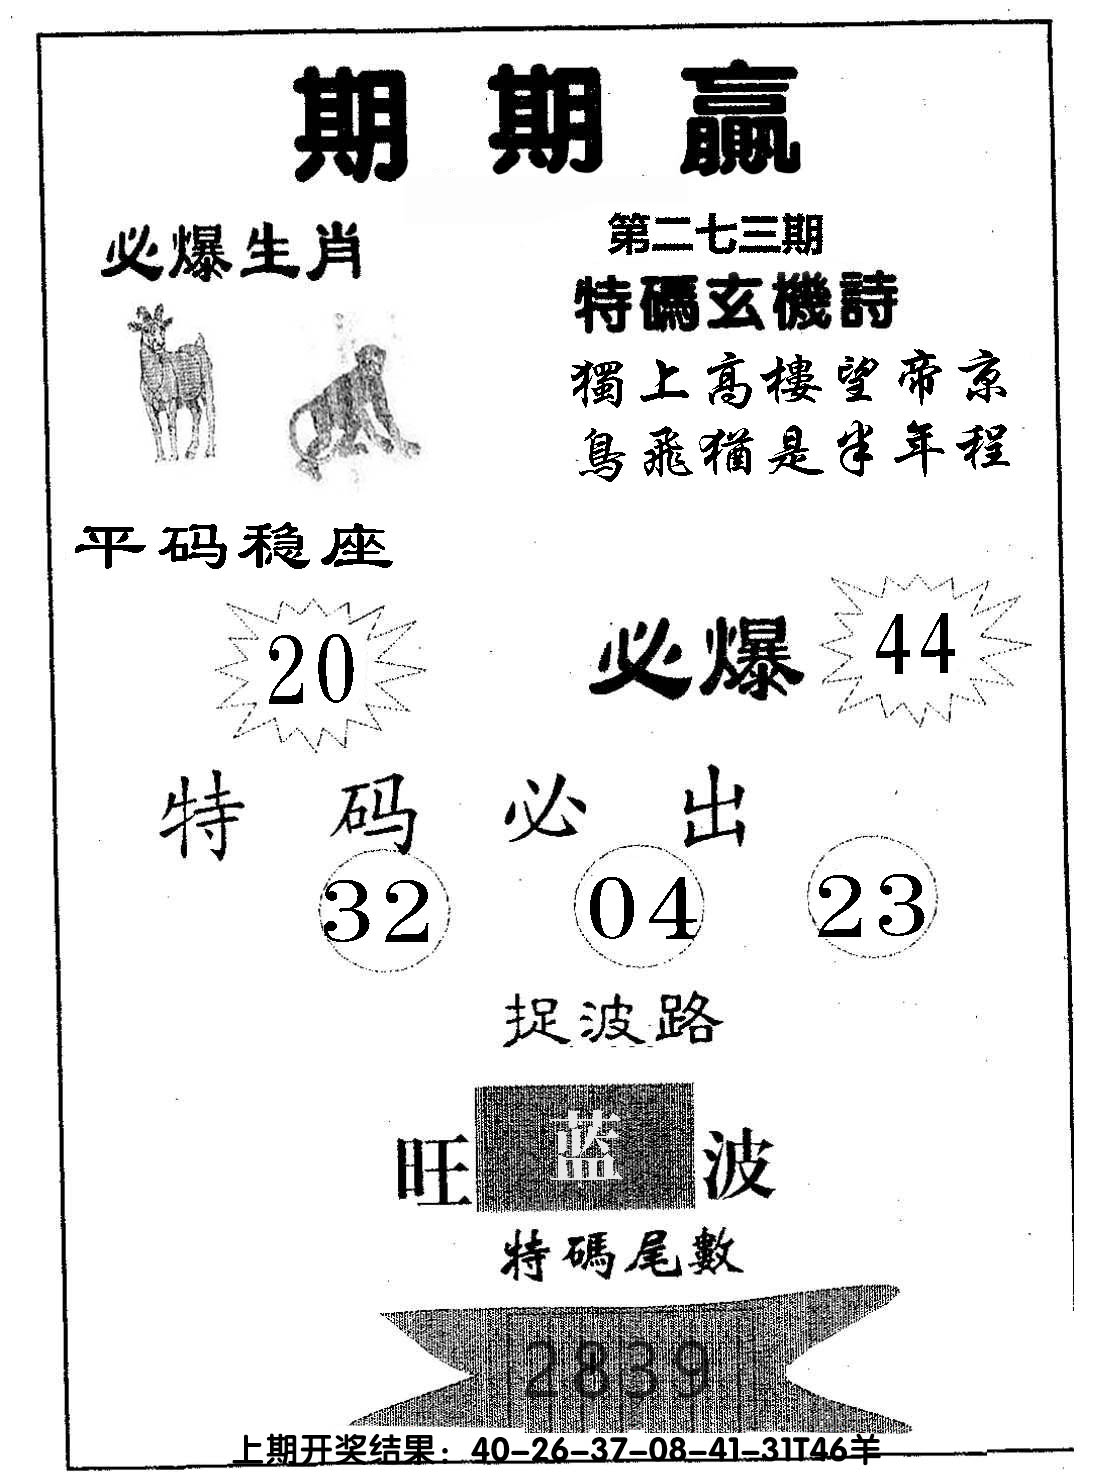 期期贏
必爆生肖
第二七三期
特碼玄機詩
獨上高樓望帝京
鳥飛猶是半年程
平码稳座
20
必爆 44
特码必出
32 04 23
捉波路
旺 蓝 波
特碼尾數
2839
上期开奖结果：40-26-37-08-41-31T46羊